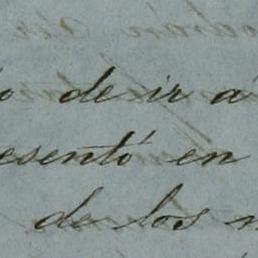 de ir á
esentó en
de los